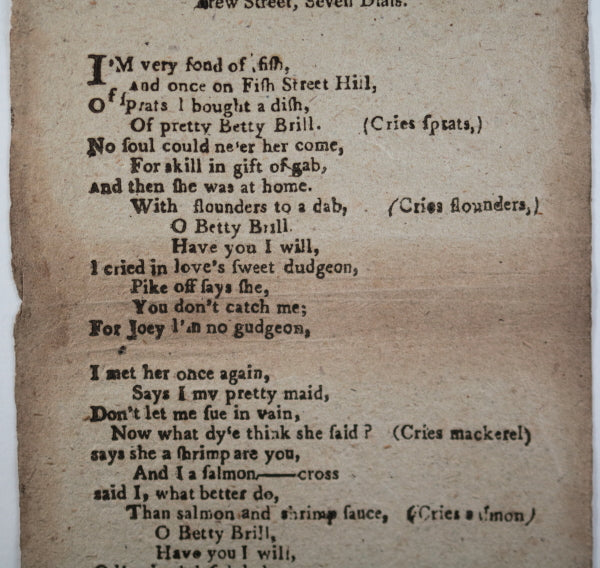 rew Street, Seven Dials.
I'M very fond of fiſh,
And once on Fiſh Street Hill,
Of ſprats I bought a diſh,
Of pretty Betty Brill. (Cries ſprats,)
No ſoul could ne'er her come,
For skill in gift of gab,
And then ſhe was at home.
With flounders to a dab, (Cries flounders,)
O Betty Brill.
Have you I will,
I cried in love's ſweet dudgeon,
Pike off ſays ſhe,
You don't catch me;
For Joey I'm no gudgeon,
I met her once again,
Says I my pretty maid,
Don't let me ſue in vain,
Now what dy'e think she ſaid? (Cries mackerel)
says she a ſhrimp are you,
And I a ſalmon——cross
said I, what better do,
Than salmon and shrimp ſauce, (Cries salmon)
O Betty Brill,
Have you I will,